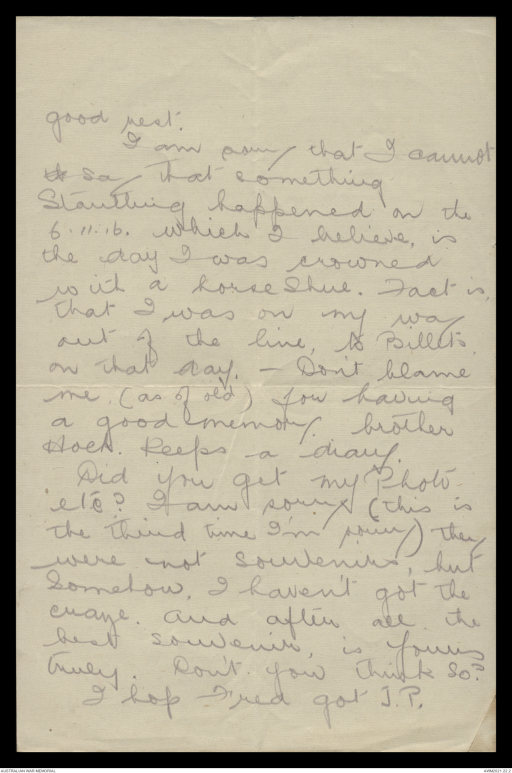 good rest.
I am sorry that I cannot
say that something
Startling happened on the
6.11.16. which I believe, is
the day I was crowned
with a horse Shue. Fact is,
that I was on my way
out of the line, to Billets
on that day. - Don't blame
me (as of old) for having
a good memory. brother
Hoch. Keeps a diary.
Did you get my Photo
etc? I am sorry (this is
the third time I'm sorry) they
were not souvenirs, but
Somehow, I haven't got the
craze. And after all the
best souvenir, is yours
truly. Don't you think so?
I hop Fred got J.P.
AUSTRALIAN WAR MEMORIAL